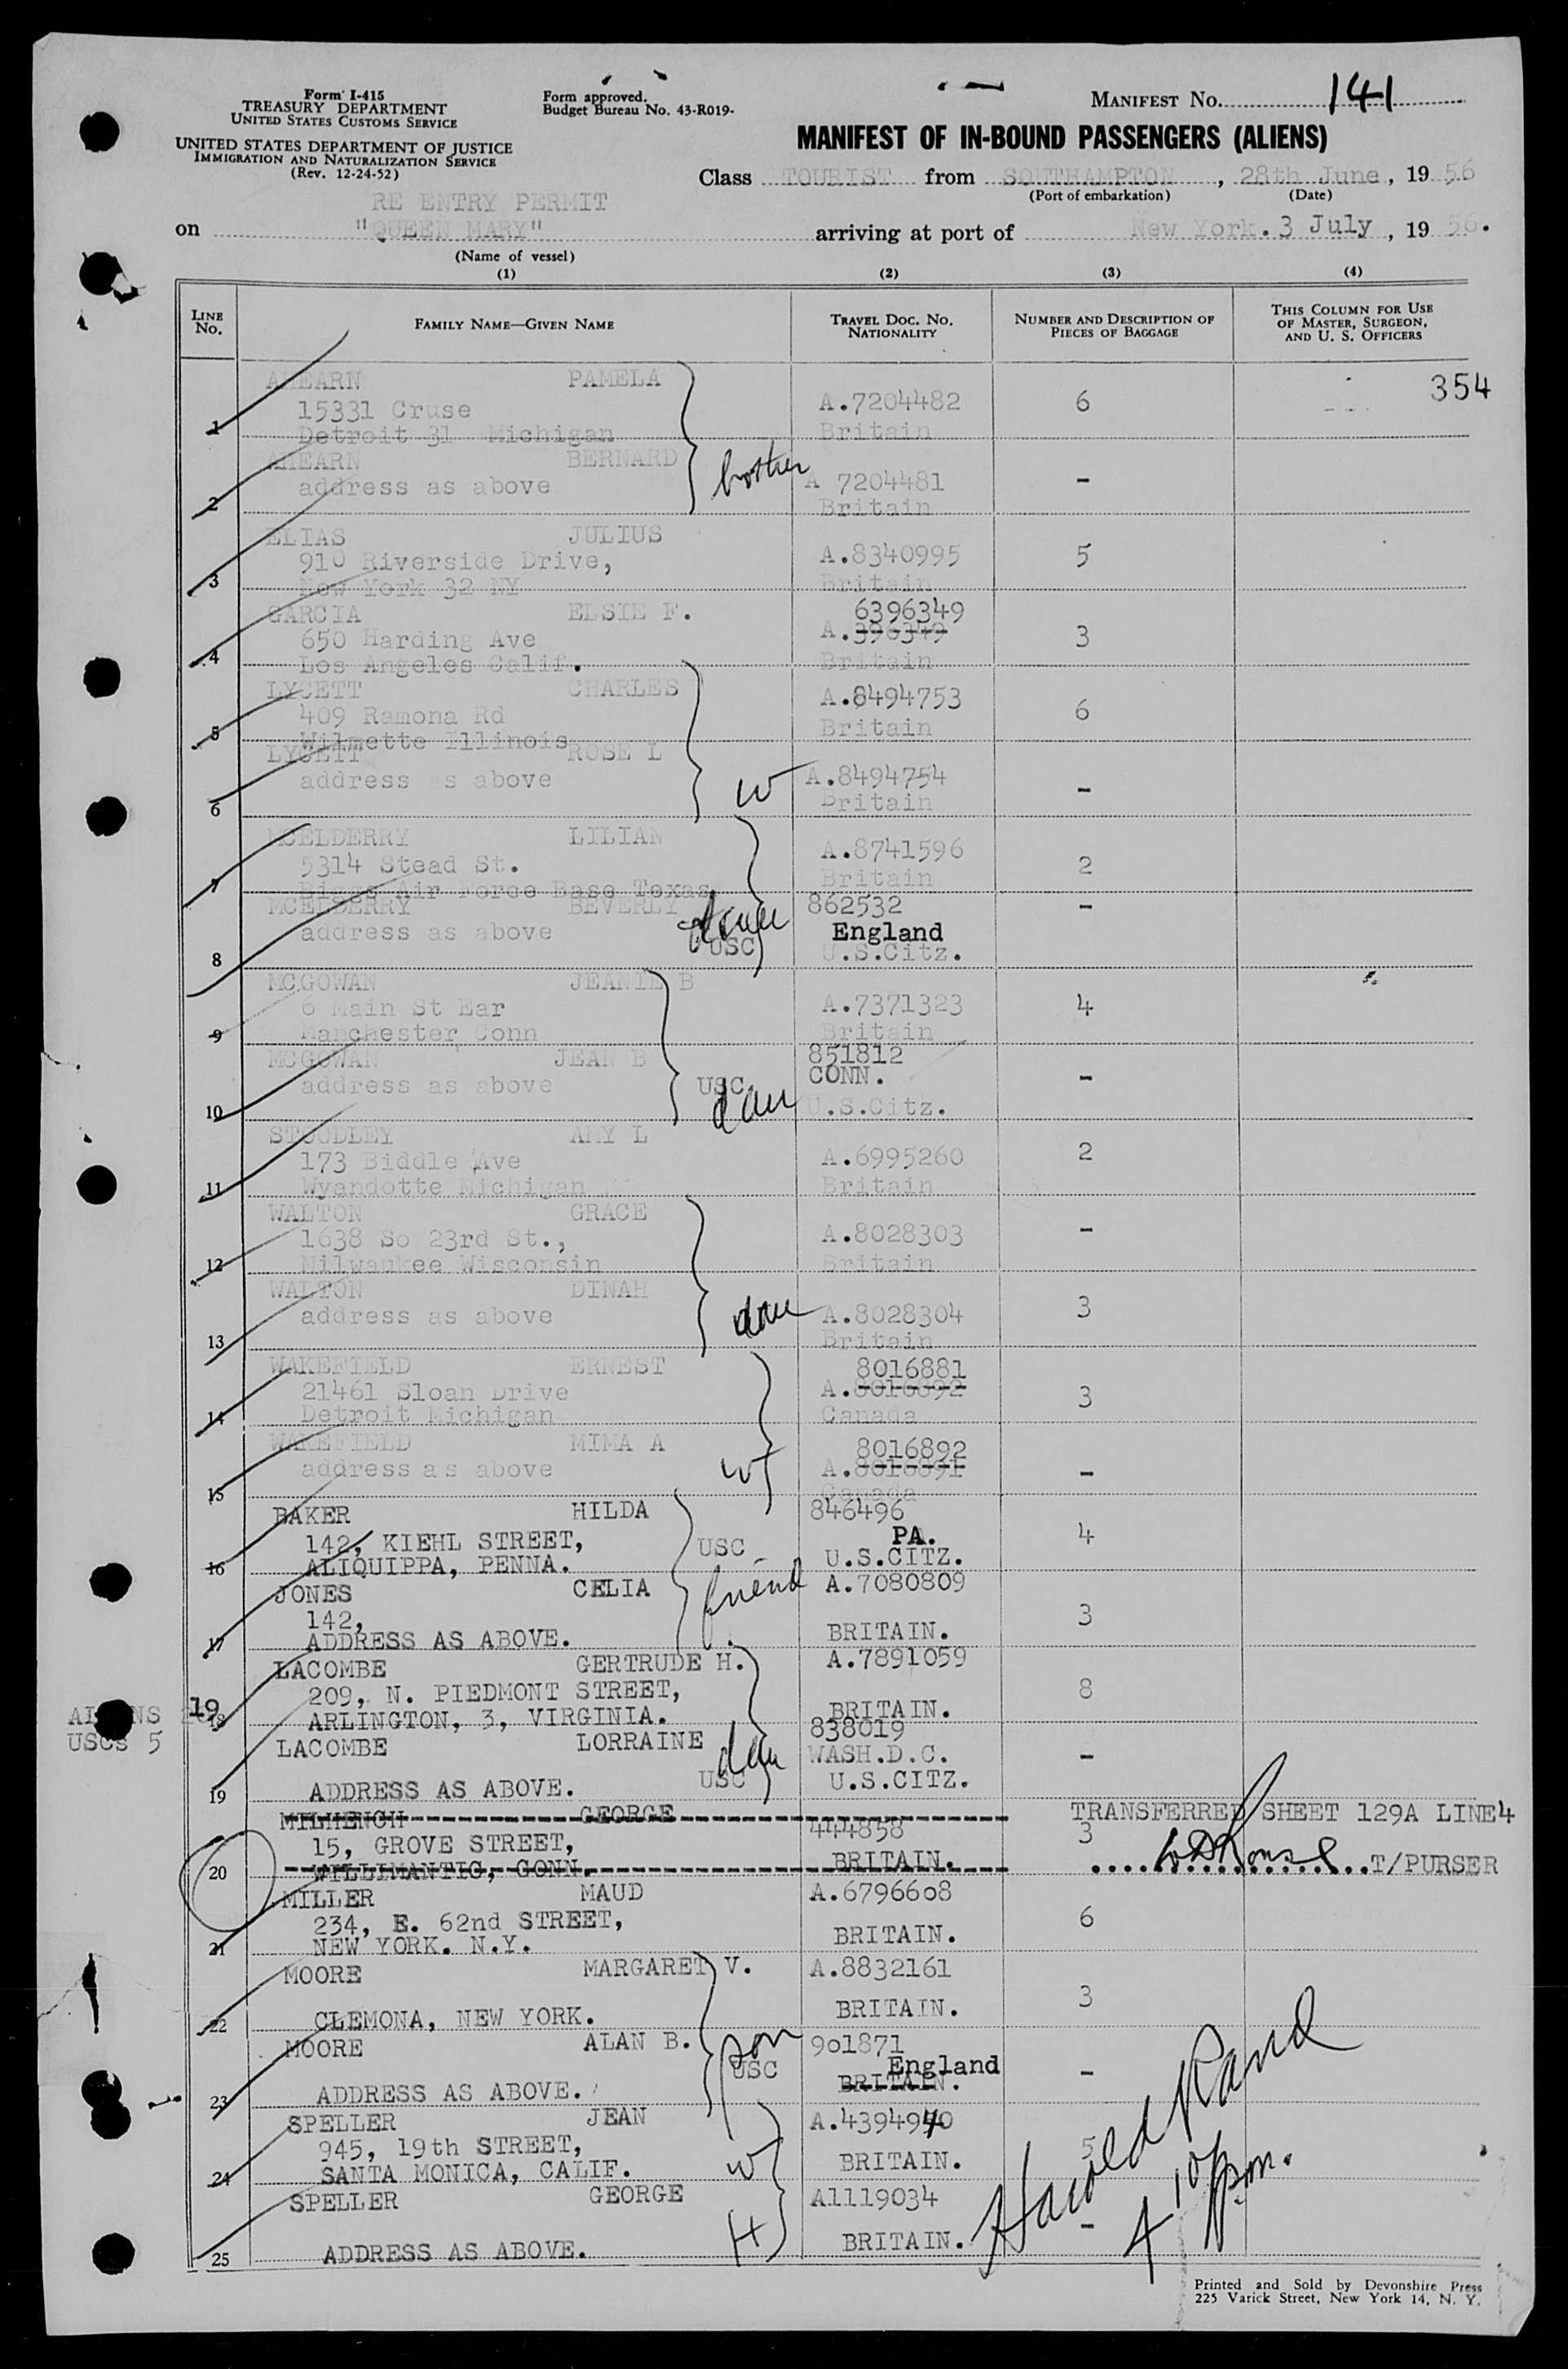 Form I-415
TREASURY DEPARTMENT
UNITED STATES CUSTOMS SERVICE
UNITED STATES DEPARTMENT OF JUSTICE
IMMIGRATION AND NATURALIZATION SERVICE
(Rev. 12-24-52)
Form approved.
Budget Bureau No. 43-R019-
MANIFEST NO. 141
MANIFEST OF IN-BOUND PASSENGERS (ALIENS)
Class TOURIST from SOUTHAMPTON, 28th June, 19 56
(Port of embarkation) (Date)
RE ENTRY PERMIT
on "QUEEN MARY" arriving at port of New York. 3 July, 19 56.
(Name of vessel)
(1) (2) (3) (4)
LINE No. FAMILY NAME—GIVEN NAME TRAVEL DOC. NO. NATIONALITY NUMBER AND DESCRIPTION OF PIECES OF BAGGAGE THIS COLUMN FOR USE OF MASTER, SURGEON, AND U. S. OFFICERS
AHEARN PAMELA 354
15331 Cruse A.7204482 6
1 Detroit 31 Michigan Britain
AHEARN BERNARD brother
address as above A 7204481 -
2 Britain
ELIAS JULIUS
910 Riverside Drive, A.8340995 5
3 New York 32 NY Britain
GARCIA ELSIE F. 6396349
650 Harding Ave A.396349 3
4 Los Angeles Calif. Britain
LYCETT CHARLES A.8494753
409 Ramona Rd Britain 6
5 Wilmette Illinois
LYCETT ROSE L
address as above W A.8494754 -
6 Britain
MCELDERRY LILIAN A.8741596
5314 Stead St. Britain 2
7 Biggs Air Force Base Texas
MCELDERRY BEVERLY 862532 -
address as above dau England
8 USC U.S.Citz.
MCGOWAN JEANIE B
6 Main St Ear A.7371323 4
9 Manchester Conn Britain
MCGOWAN JEAN B 851812
address as above USC CONN. -
10 dau U.S.Citz.
STOODLEY AMY L
173 Biddle Ave A.6995260 2
11 Wyandotte Michigan Britain
WALTON GRACE
1638 So 23rd St., A.8028303 -
12 Milwaukee Wisconsin Britain
WALTON DINAH
address as above dau A.8028304 3
13 Britain
WAKEFIELD ERNEST 8016881
21461 Sloan Drive A.8016892 3
14 Detroit Michigan Canada
WAKEFIELD MIMA A 8016892
address as above W A.8016891 -
15 Canada
BAKER HILDA 846496
142, KIEHL STREET, USC PA. 4
16 ALIQUIPPA, PENNA. U.S.CITZ.
JONES CELIA friend A.7080809
142, 3
17 ADDRESS AS ABOVE. BRITAIN.
LACOMBE GERTRUDE H. A.7891059
209, N. PIEDMONT STREET, 8
ALIENS 19
18 ARLINGTON, 3, VIRGINIA. BRITAIN.
USCS 5
LACOMBE LORRAINE dau 838019
WASH.D.C. -
19 ADDRESS AS ABOVE. USC U.S.CITZ.
MILHENCH GEORGE 444858 TRANSFERRED SHEET 129A LINE4
15, GROVE STREET, 3
20 WILLIMANTIC, CONN. BRITAIN. T/PURSER
MILLER MAUD A.6796608
234, E. 62nd STREET, 6
21 NEW YORK. N.Y. BRITAIN.
MOORE MARGARET V. A.8832161
3
22 CLEMONA, NEW YORK. BRITAIN.
MOORE ALAN B. son 901871
USC England -
23 ADDRESS AS ABOVE. BRITAIN.
SPELLER JEAN A.4394940
945, 19th STREET, 5
24 SANTA MONICA, CALIF. W BRITAIN.
SPELLER GEORGE A1119034
H -
25 ADDRESS AS ABOVE. BRITAIN.
Harold Rand
4 10 pm.
Printed and Sold by Devonshire Press
225 Varick Street, New York 14, N. Y.